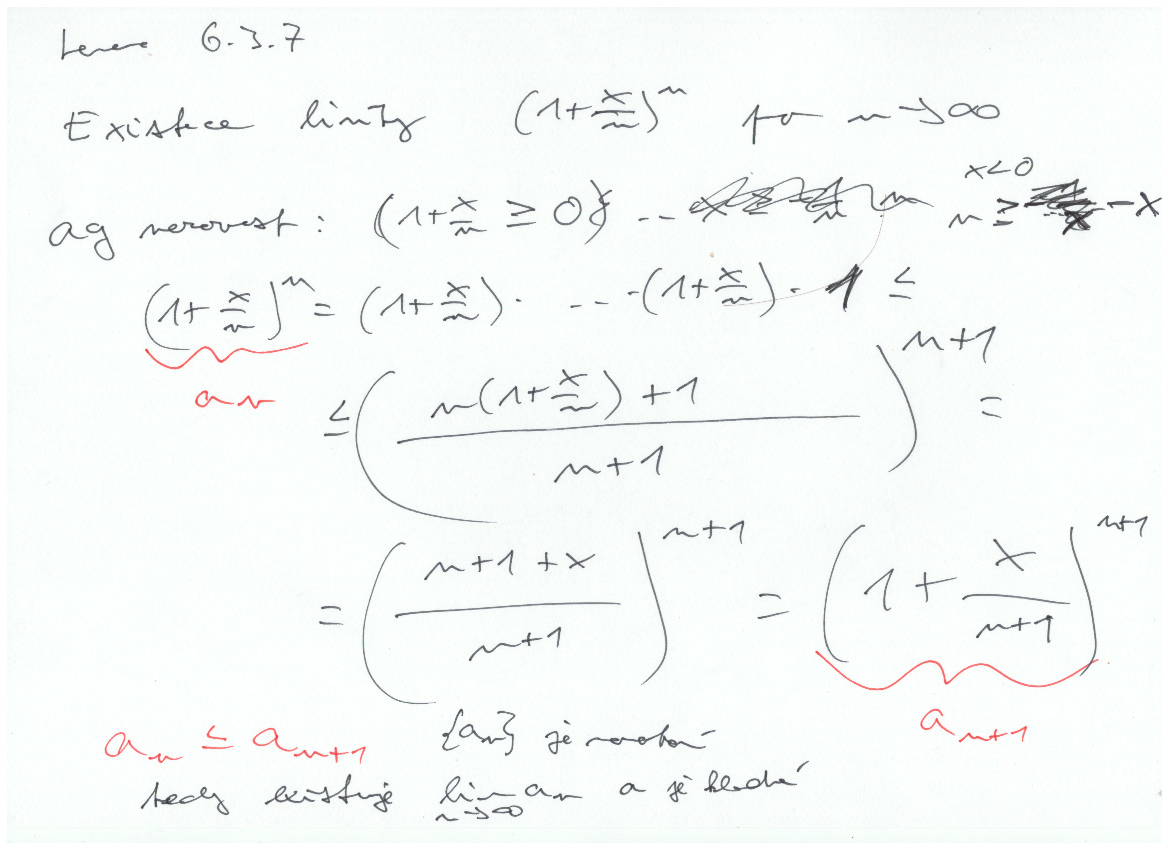 Lemma 6.3.7
Existence limity (1+x/n)^n pro n→∞
ag nerovnost: (1+x/n ≥ 0) ... x<0 n ≥ -x
(1+x/n)^n = (1+x/n) · ... · (1+x/n) · 1 ≤
a_n
≤ ( (n(1+x/n)+1) / (n+1) )^{n+1} =
= ( (n+1+x) / (n+1) )^{n+1} = ( 1 + x/(n+1) )^{n+1}
a_{n+1}
a_n ≤ a_{n+1} {a_n} je
tedy existuje lim_{n→∞} a_n a je kladná